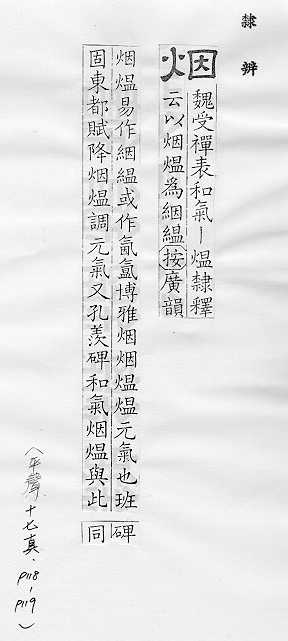 隸辨
烟
魏受禪表和氣丨熅隸釋
云以烟熅為絪縕按廣韻
烟熅易作絪縕或作氤氳博雅烟烟熅熅元氣也班
固東都賦降烟熅調元氣又孔羨碑和氣烟熅與此碑
同
(平聲十七真.P118-P119)